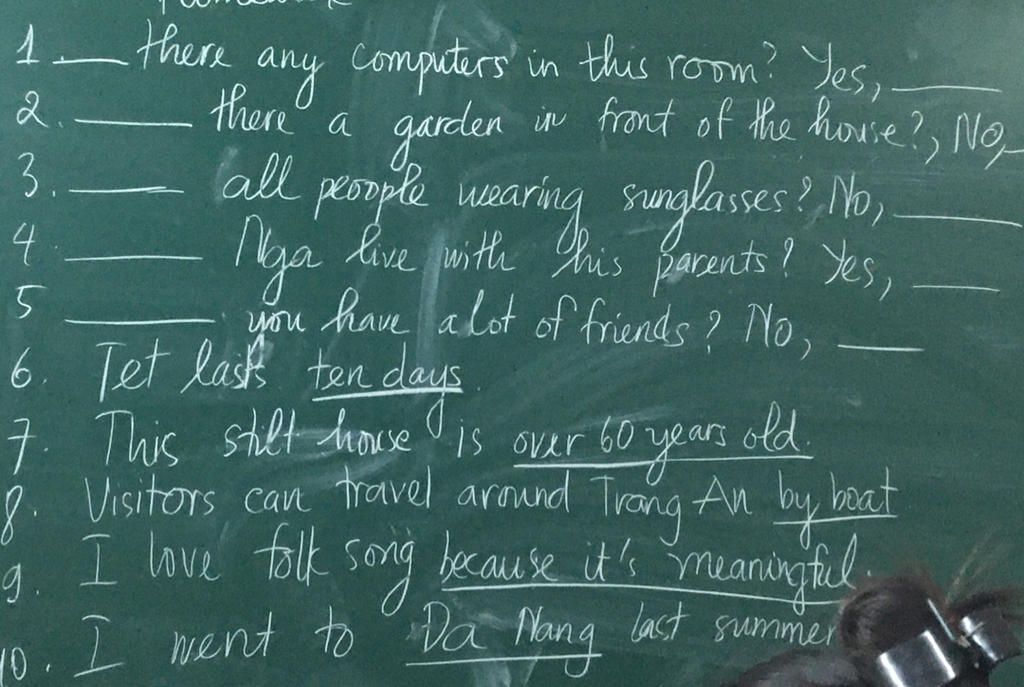 Homework
1. ___ there any computers in this room? Yes, ___
2. ___ there a garden in front of the house?, No, ___
3. ___ all peoople wearing sunglasses? No, ___
4. ___ Nga live with his parents? Yes, ___
5 ___ you have a lot of friends? No, ___
6. Tet lasts ten days.
7. This stilt house is over 60 years old.
8. Visitors can travel around Trang An by boat
9. I love folk song because it's meaningful.
10. I went to Da Nang last summer